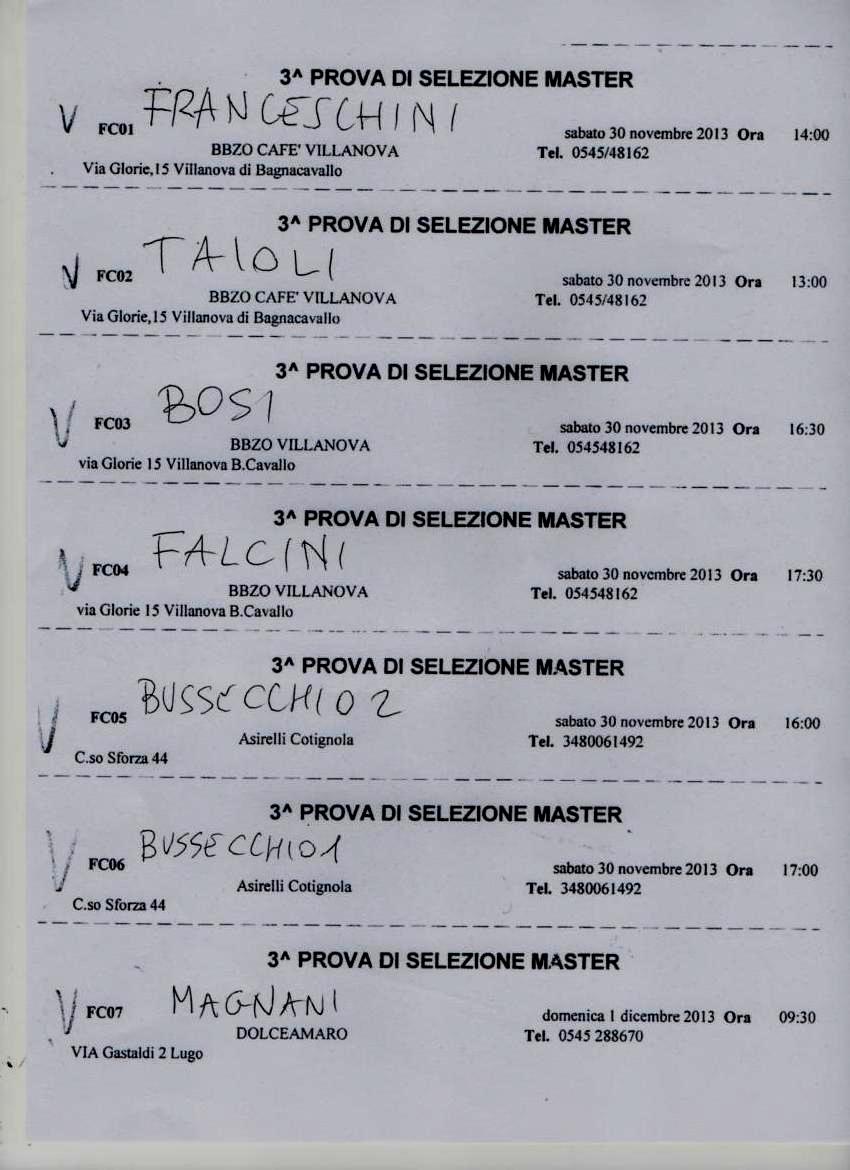 3^ PROVA DI SELEZIONE MASTER
V FC01 FRANCESCHINI sabato 30 novembre 2013 Ora 14:00
BBZO CAFE' VILLANOVA Tel. 0545/48162
Via Glorie,15 Villanova di Bagnacavallo
3^ PROVA DI SELEZIONE MASTER
V FC02 TAIOLI sabato 30 novembre 2013 Ora 13:00
BBZO CAFE' VILLANOVA Tel. 0545/48162
Via Glorie,15 Villanova di Bagnacavallo
3^ PROVA DI SELEZIONE MASTER
V FC03 BOSI sabato 30 novembre 2013 Ora 16:30
BBZO VILLANOVA Tel. 054548162
via Glorie 15 Villanova B.Cavallo
3^ PROVA DI SELEZIONE MASTER
V FC04 FALCINI sabato 30 novembre 2013 Ora 17:30
BBZO VILLANOVA Tel. 054548162
via Glorie 15 Villanova B.Cavallo
3^ PROVA DI SELEZIONE MASTER
V FC05 BUSSECCHIO 2 sabato 30 novembre 2013 Ora 16:00
Asirelli Cotignola Tel. 3480061492
C.so Sforza 44
3^ PROVA DI SELEZIONE MASTER
V FC06 BUSSECCHIO 1 sabato 30 novembre 2013 Ora 17:00
Asirelli Cotignola Tel. 3480061492
C.so Sforza 44
3^ PROVA DI SELEZIONE MASTER
V FC07 MAGNANI domenica 1 dicembre 2013 Ora 09:30
DOLCEAMARO Tel. 0545 288670
VIA Gastaldi 2 Lugo